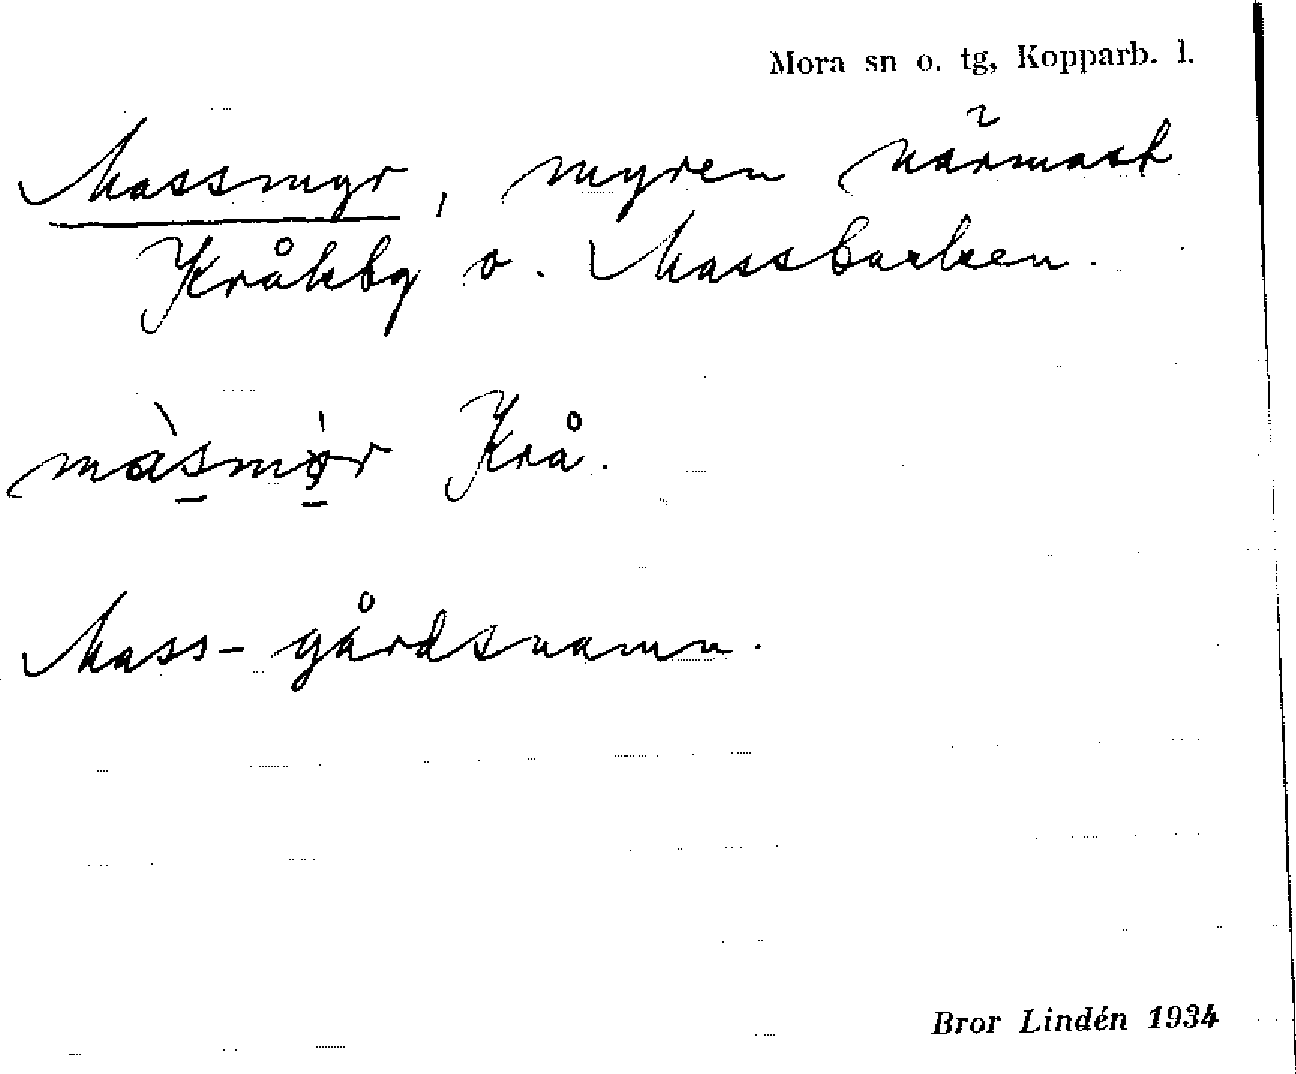 Mora sn o. tg, Kopparb. l.
Massmyr, myren närmast
Kråkby o. Massbacken.
màsmø̀r Krå.
Mass- gårdsnamn.
Bror Lindén 1934